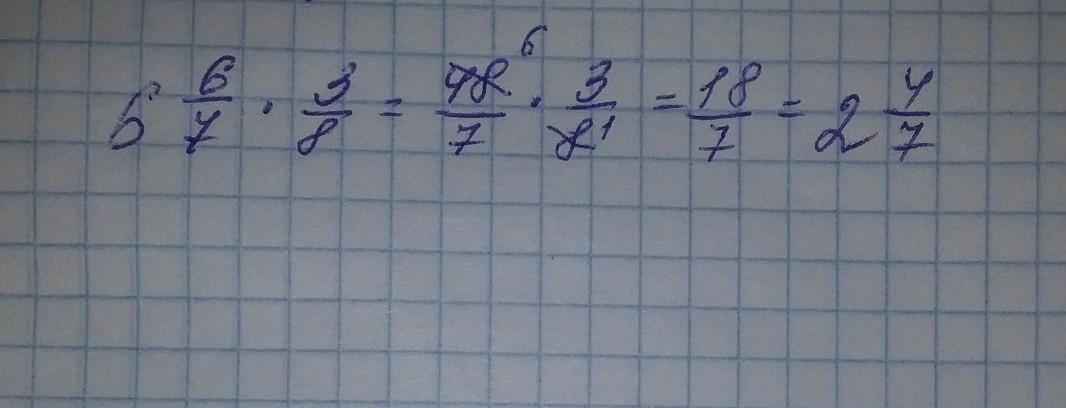 6 6/7 · 3/8 = 48 6/7 · 3/8 1 = 18/7 = 2 4/7